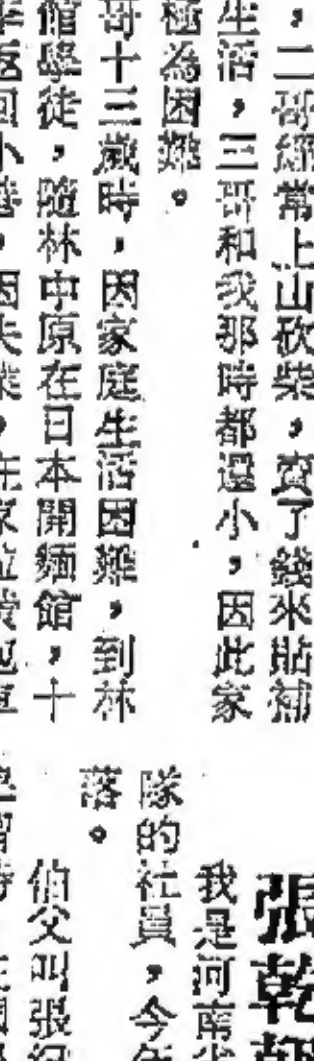 ，二哥經常上山砍柴，賣了錢來貼補
生活，三哥和我那時都還小，因此家
極為困難。
哥十三歲時，因家庭生活困難，到林
館學徒，隨林中原在日本開麵館，十
返回小，因失業，在家拉黃包車
張乾
我是河南省
隊的社員，今年
落。
伯父叫張